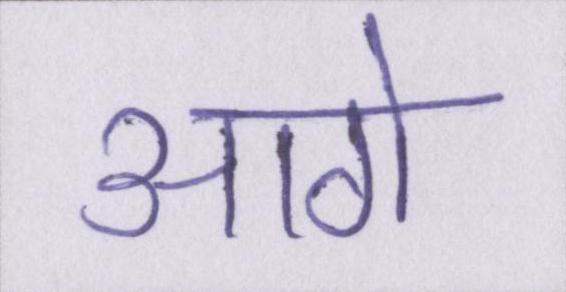 आगे